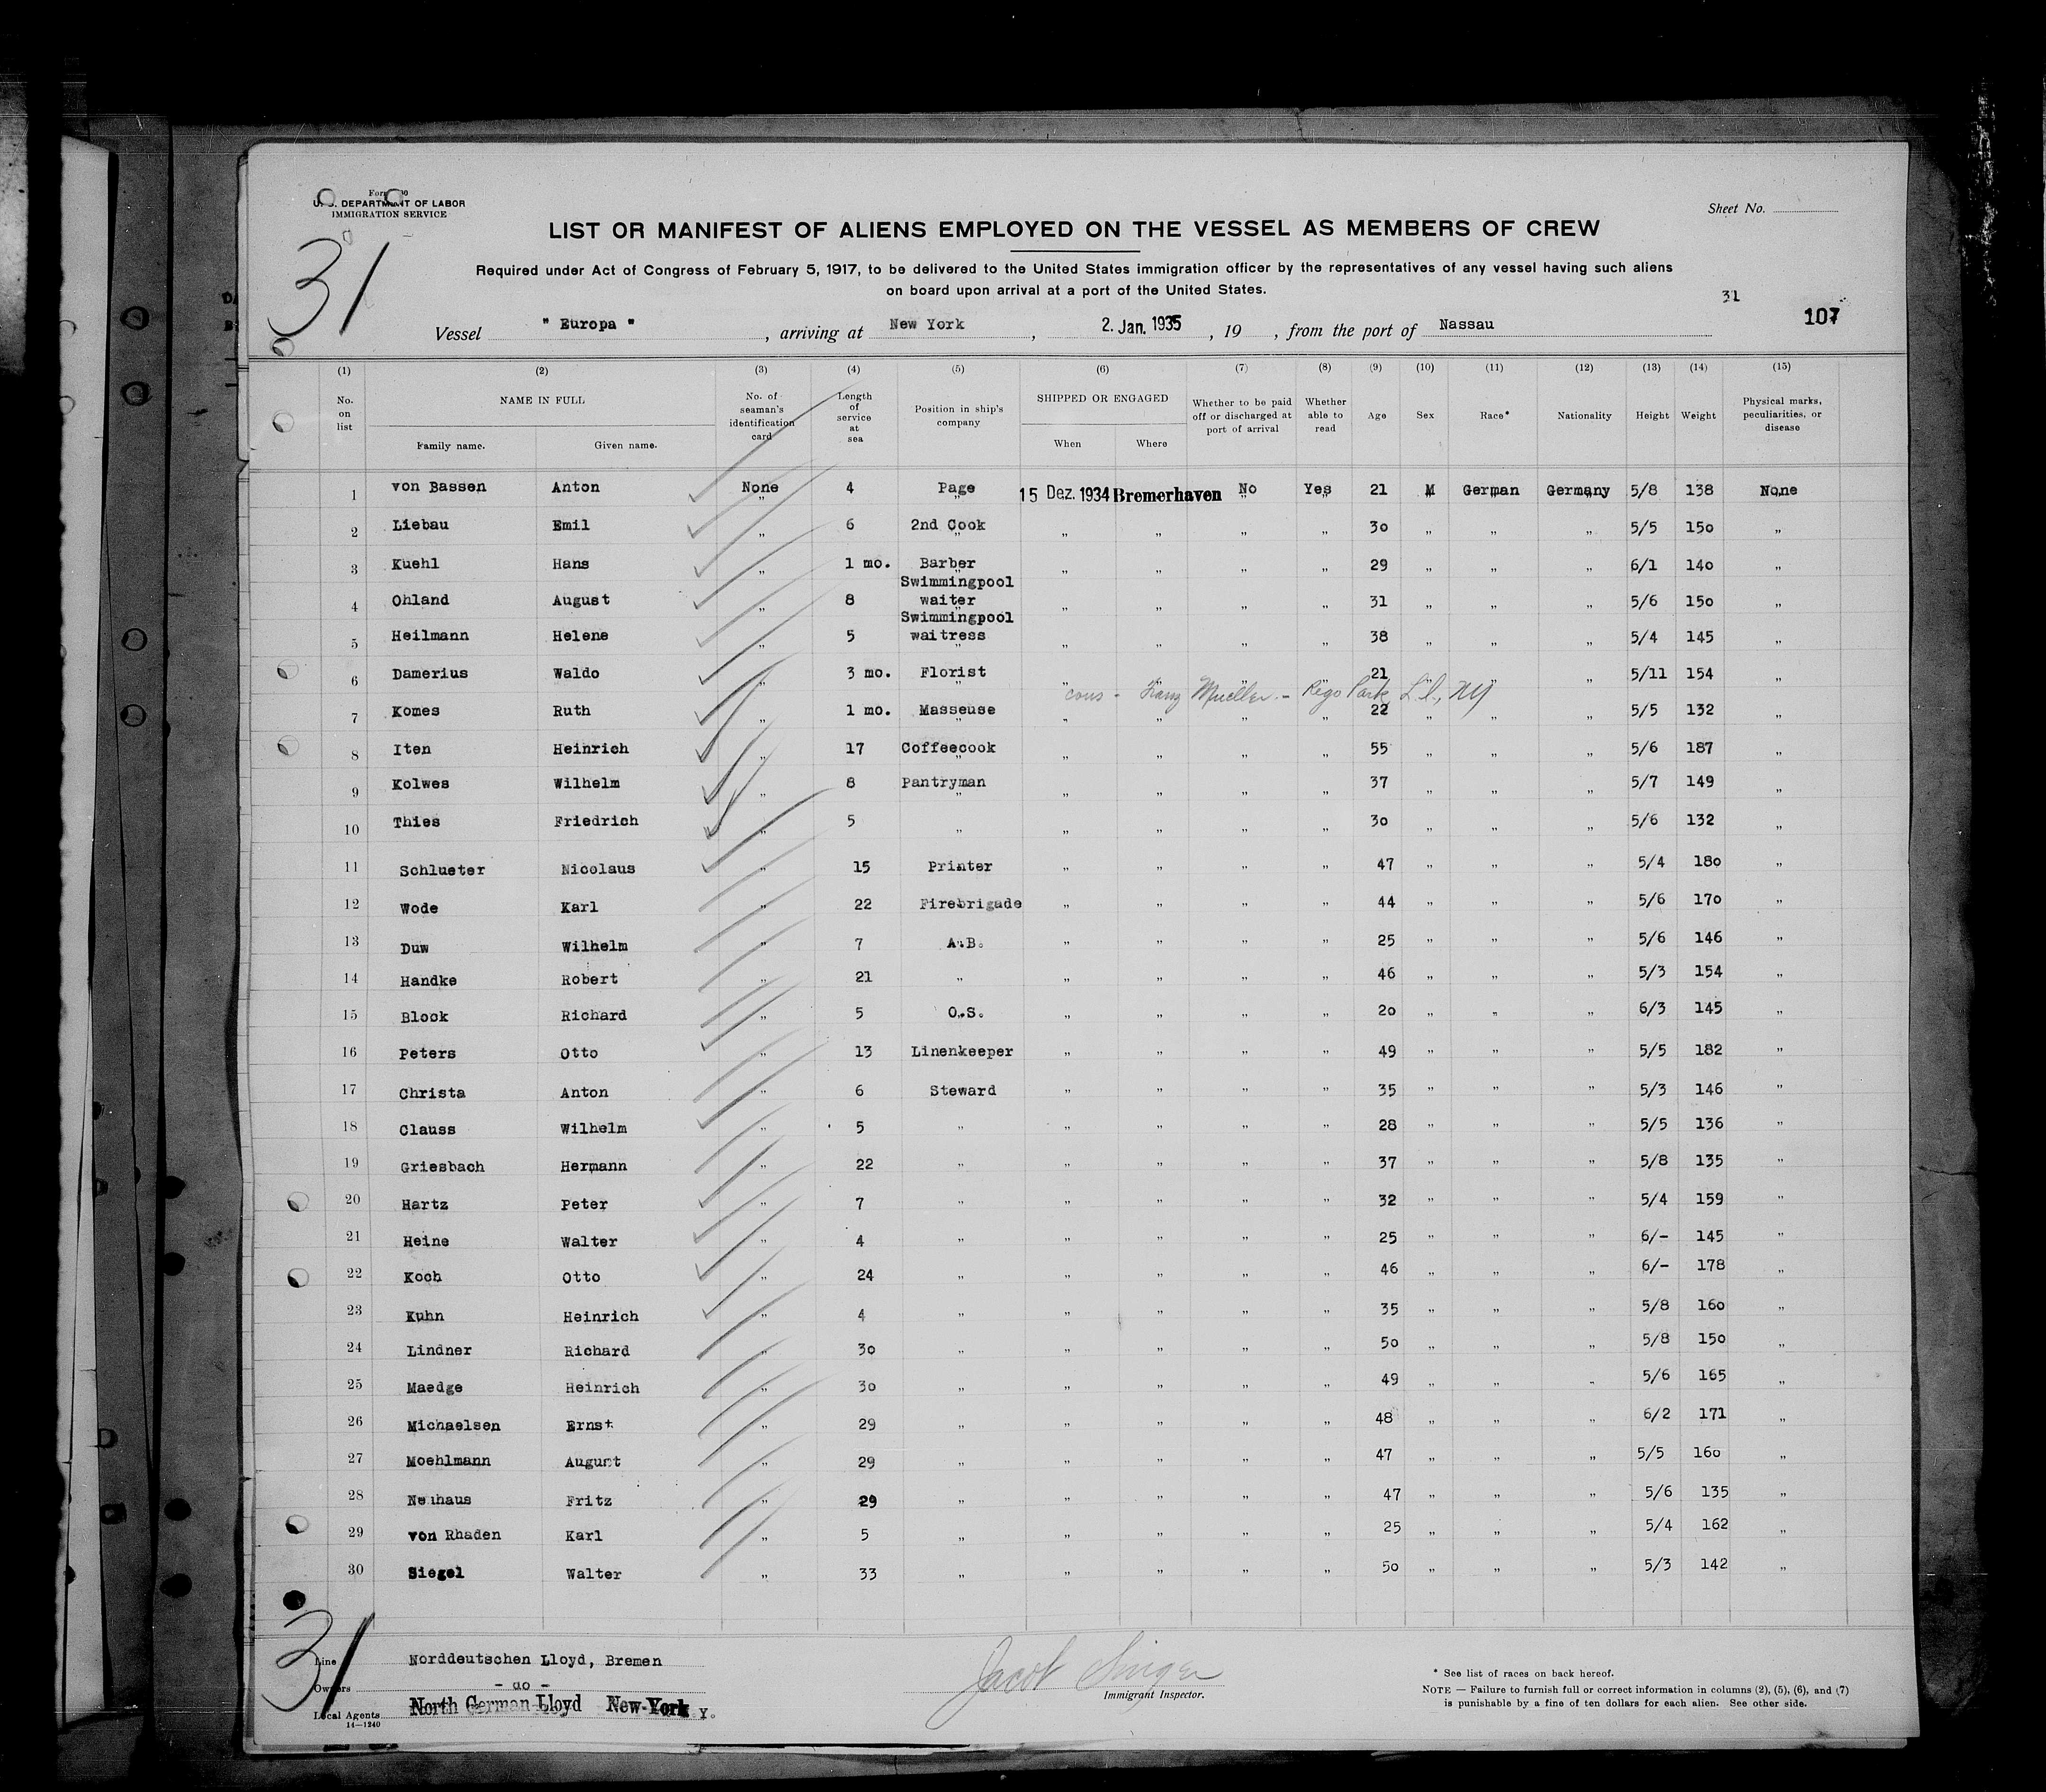 U. S. DEPARTMENT OF LABOR
IMMIGRATION SERVICE
Sheet No.
31
LIST OR MANIFEST OF ALIENS EMPLOYED ON THE VESSEL AS MEMBERS OF CREW
Required under Act of Congress of February 5, 1917, to be delivered to the United States immigration officer by the representatives of any vessel having such aliens
on board upon arrival at a port of the United States.
31
107
Vessel " Europa " , arriving at New York , 2. Jan. 1935 , 19 , from the port of Nassau
(1) (2) (3) (4) (5) (6) (7) (8) (9) (10) (11) (12) (13) (14) (15)
No. on list NAME IN FULL Family name. Given name. No. of seaman's identification card Length of service at sea Position in ship's company SHIPPED OR ENGAGED When Where Whether to be paid off or discharged at port of arrival Whether able to read Age Sex Race* Nationality Height Weight Physical marks, peculiarities, or disease
1 von Bassen Anton None 4 Page 15 Dez. 1934 Bremerhaven No Yes 21 M German Germany 5/8 138 None
2 Liebau Emil " 6 2nd Cook " " " " 30 " " " 5/5 150 "
3 Kuehl Hans " 1 mo. Barber " " " " 29 " " " 6/1 140 "
4 Ohland August " 8 Swimmingpool waiter " " " " 31 " " " 5/6 150 "
5 Heilmann Helene " 5 Swimmingpool waitress " " " " 38 " " " 5/4 145 "
6 Damerius Waldo " 3 mo. Florist " " " " 21 " " " 5/11 154 "
cous - Franz Mueller - Rego Park, L.I., NY
7 Komes Ruth " 1 mo. Masseuse " " " " 22 " " " 5/5 132 "
8 Iten Heinrich " 17 Coffeecook " " " " 55 " " " 5/6 187 "
9 Kolwes Wilhelm " 8 Pantryman " " " " 37 " " " 5/7 149 "
10 Thies Friedrich " 5 " " " " " 30 " " " 5/6 132 "
11 Schlueter Nicolaus " 15 Printer " " " " 47 " " " 5/4 180 "
12 Wode Karl " 22 Firebrigade " " " " 44 " " " 5/6 170 "
13 Duw Wilhelm " 7 A.B. " " " " 25 " " " 5/6 146 "
14 Handke Robert " 21 " " " " " 46 " " " 5/3 154 "
15 Block Richard " 5 O.S. " " " " 20 " " " 6/3 145 "
16 Peters Otto " 13 Linenkeeper " " " " 49 " " " 5/5 182 "
17 Christa Anton " 6 Steward " " " " 35 " " " 5/3 146 "
18 Clauss Wilhelm " 5 " " " " " 28 " " " 5/5 136 "
19 Griesbach Hermann " 22 " " " " " 37 " " " 5/8 135 "
20 Hartz Peter " 7 " " " " " 32 " " " 5/4 159 "
21 Heine Walter " 4 " " " " " 25 " " " 6/- 145 "
22 Koch Otto " 24 " " " " " 46 " " " 6/- 178 "
23 Kuhn Heinrich " 4 " " " " " 35 " " " 5/8 160 "
24 Lindner Richard " 30 " " " " " 50 " " " 5/8 150 "
25 Maedge Heinrich " 30 " " " " " 49 " " " 5/6 165 "
26 Michaelsen Ernst " 29 " " " " " 48 " " " 6/2 171 "
27 Moehlmann August " 29 " " " " " 47 " " " 5/5 160 "
28 Neuhaus Fritz " 29 " " " " " 47 " " " 5/6 135 "
29 von Rhaden Karl " 5 " " " " " 25 " " " 5/4 162 "
30 Siegel Walter " 33 " " " " " 50 " " " 5/3 142 "
31
Line Norddeutschen Lloyd, Bremen
Owners - do -
Local Agents North German Lloyd New-York Y.
14—1240
Jacob Singer
Immigrant Inspector.
* See list of races on back hereof.
NOTE — Failure to furnish full or correct information in columns (2), (5), (6), and (7)
is punishable by a fine of ten dollars for each alien. See other side.